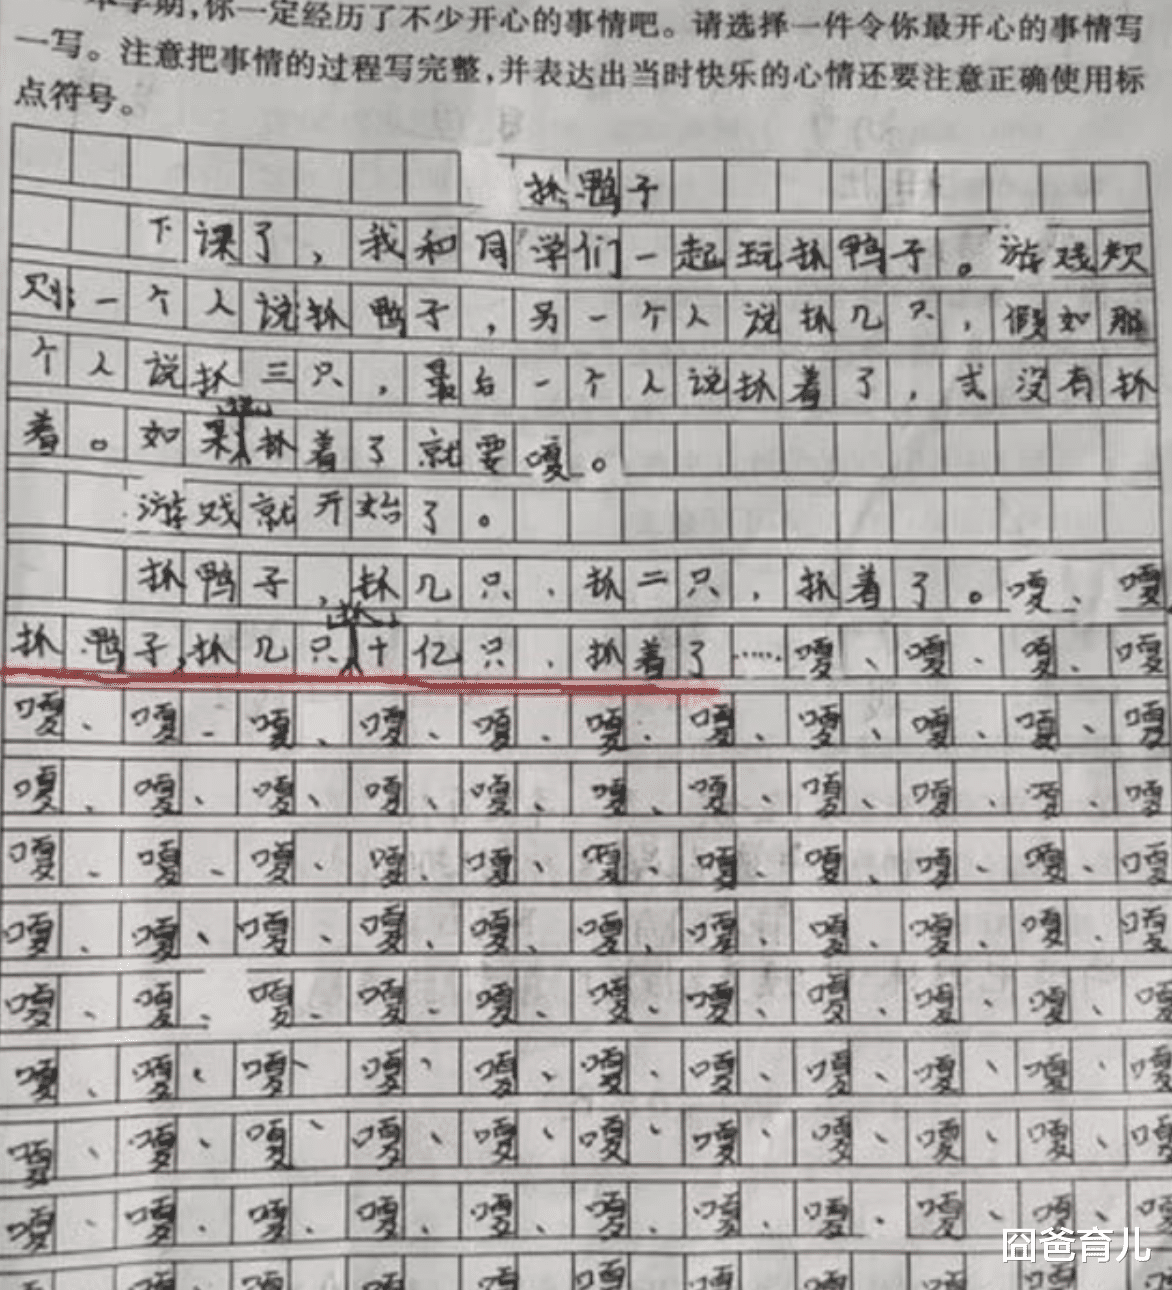 本学期,你一定经历了不少开心的事情吧。请选择一件令你最开心的事情写
一写。注意把事情的过程写完整,并表达出当时快乐的心情还要注意正确使用标
点符号。
抓鸭子
下课了，我和同学们一起玩抓鸭子。游戏规
则：一个人说抓鸭子，另一个人说抓几只，假如那
个人说抓三只，最后一个人说抓着了，或没有抓
着。如果抓着了就要嘎。
游戏就开始了。
抓鸭子，抓几只、抓二只，抓着了。嘎、嘎
抓鸭子，抓几只抓十亿只、抓着了……嘎、嘎、嘎、嘎
嘎、嘎、嘎、嘎、嘎、嘎、嘎、嘎、嘎、嘎、嘎
嘎、嘎、嘎、嘎、嘎、嘎、嘎、嘎、嘎、嘎、嘎
嘎、嘎、嘎、嘎、嘎、嘎、嘎、嘎、嘎、嘎、嘎
嘎、嘎、嘎、嘎、嘎、嘎、嘎、嘎、嘎、嘎、嘎
嘎、嘎、嘎、嘎、嘎、嘎、嘎、嘎、嘎、嘎、嘎
嘎、嘎、嘎、嘎、嘎、嘎、嘎、嘎、嘎、嘎、嘎
嘎、嘎、嘎、嘎、嘎、嘎、嘎、嘎、嘎、嘎、嘎
嘎、嘎、嘎、嘎、嘎、嘎、嘎、嘎、嘎、嘎、嘎
囧爸育儿